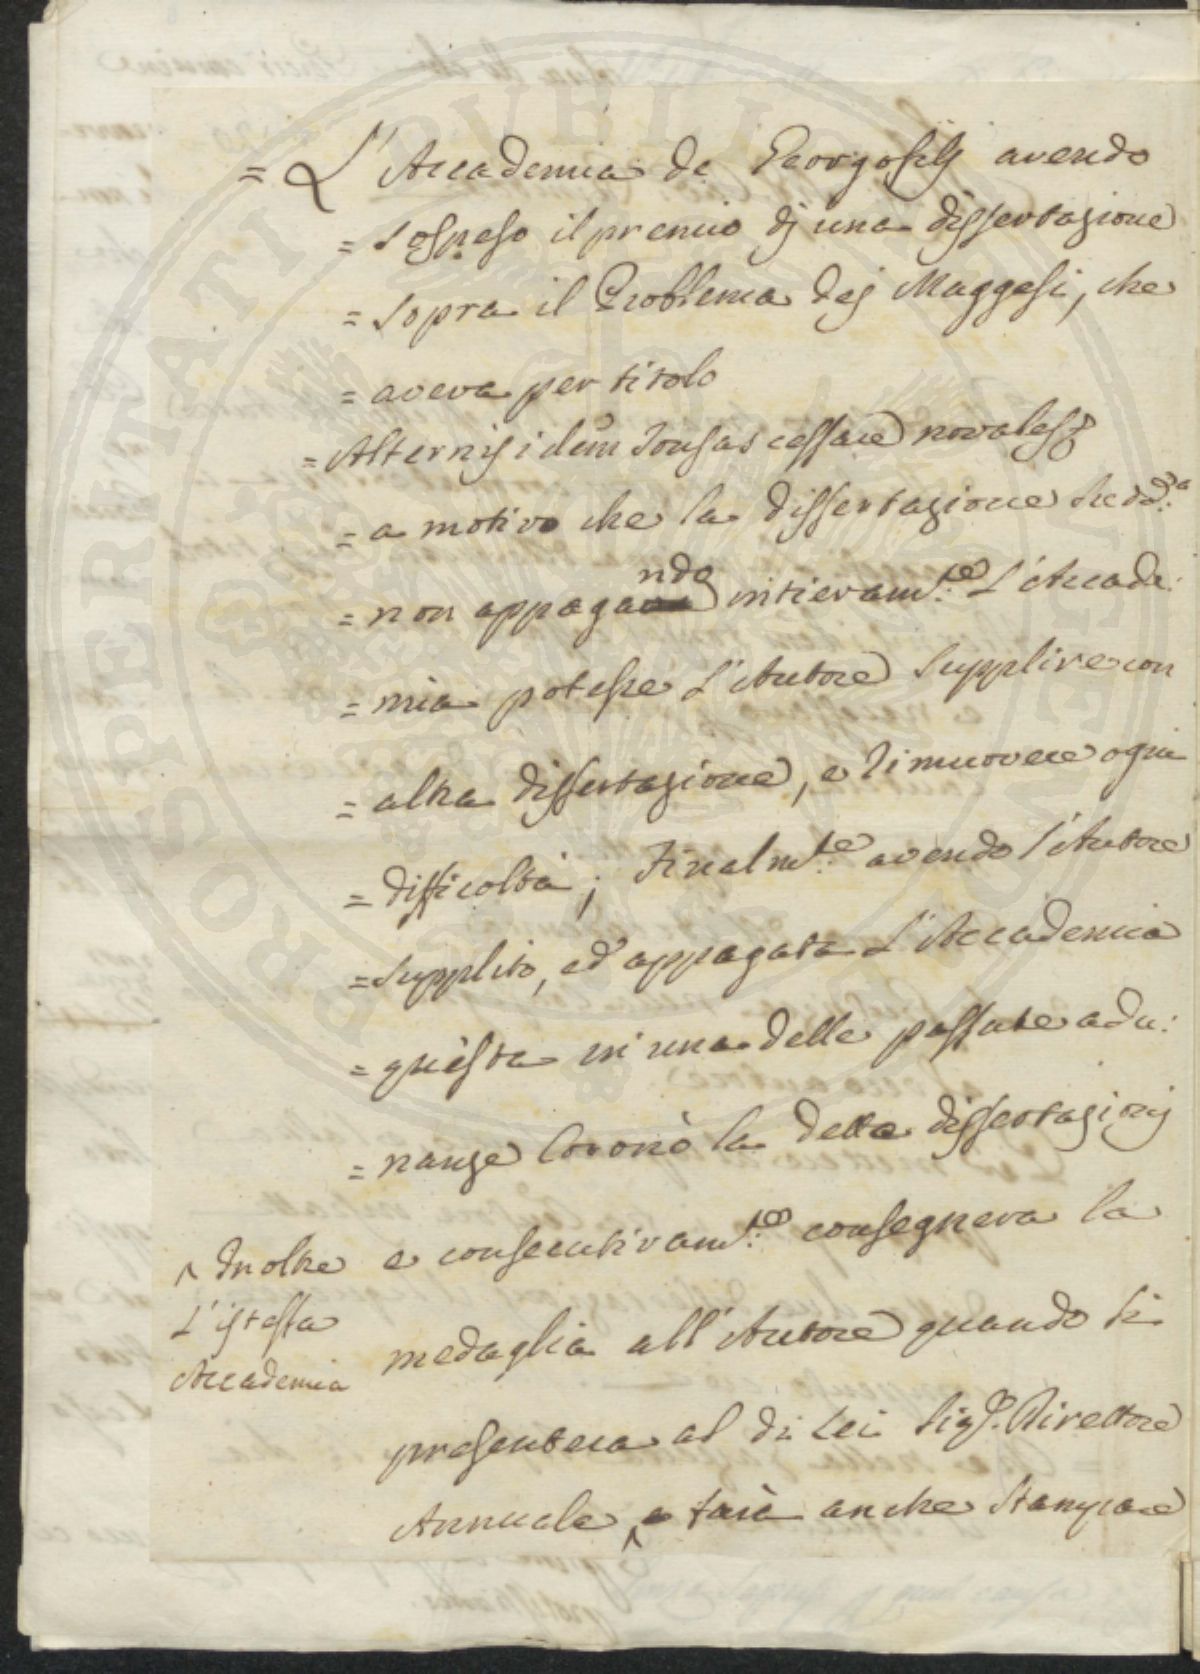 = L'Accademia de Georgofilj avendo
= sospeso il premio dj una dissertazione
= sopra il Problema dej Maggesi, che
= aveva per titolo
= Alternis idem tonsas cessare novales
= a motivo che la dissertazione
= non appagando intieram.te L'Accade:
= mia potesse L'Autore supplire con
= altra dissertazione, e rimuovere ogni
= difficoltà; Finalm.te avendo l'Autore
= supplito, ed appagata L'Accademia
= questa in una delle passate adu:
= nanze Coronò la detta dissertazionj
e consecutivam.te consegnera la
medaglia all'Autore quando si
presentera al di Lei Sig.r Direttore
Annuale, e farà anche Stampare
^ Inoltre
L'istessa
Accademia
PROSPERITATI PUBLICAE AUGENDAE